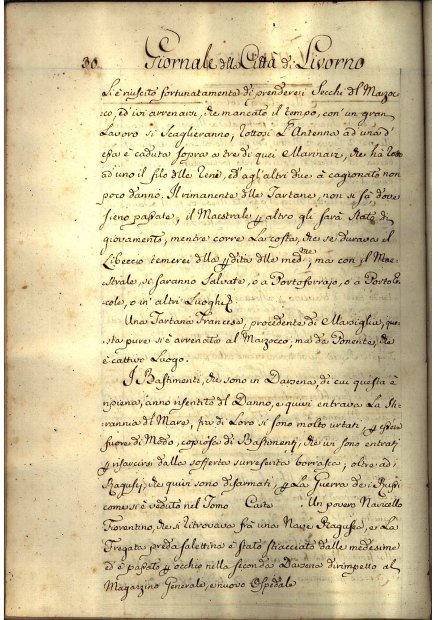 30. Giornale della Città di Livorno
si è riuscito fortunatamente di prendere i Secchi del Marzoc-
co, ed ivi arrenarsi, che mancato il tempo, con un gran
Lavoro si Scaglieranno, rottosi L'Antenna ad una d'
esse è caduta sopra a tre di quei Marinari, che hà rotto
ad uno il filo delle Reni, ed agl'altri due à cagionato non
poco danno. Il rimanente delle Tartane, non si sà dove
sieno passate, il Maestrale p altro gli sarà stato di
giovamento, mentre corre La costa, che se durava il
Libeccio temerei della pdita delle med.me, ma con il Mae-
strale, si saranno Salvate, o a Portoferrajo, o a Porto Er-
cole, o in altri Luoghi.
Una Tartana Francese, procedente di Marsiglia, que-
sta pure si è arrenata al Marzocco, ma da Ponente, che
è cattivo Luogo.
I Bastimenti, che sono in Darsena, di cui questa è
ripiena, anno risentito del Danno, e quivi entrava La Ti-
rannia del Mare, fra di Loro si sono molto urtati, p essere
fuore di Modo, copiosa di Bastimenti, che vi sono entrati
p risarcirsi dalla sofferta surreferita borrasca; oltre a i
Ragusei, che quivi sono disarmati, p La Guerra de i Russi
come si è veduto nel Tomo Carte Un povero Navicello
Fiorentino, che si ritrovava frà una Nave Ragusea, e La
Fregata preda salettina è stato stiacciato dalle medesime
ed è passato p occhio nella seconda Darsena dirimpetto al
Magazzino Generale, e nuovo Ospedale